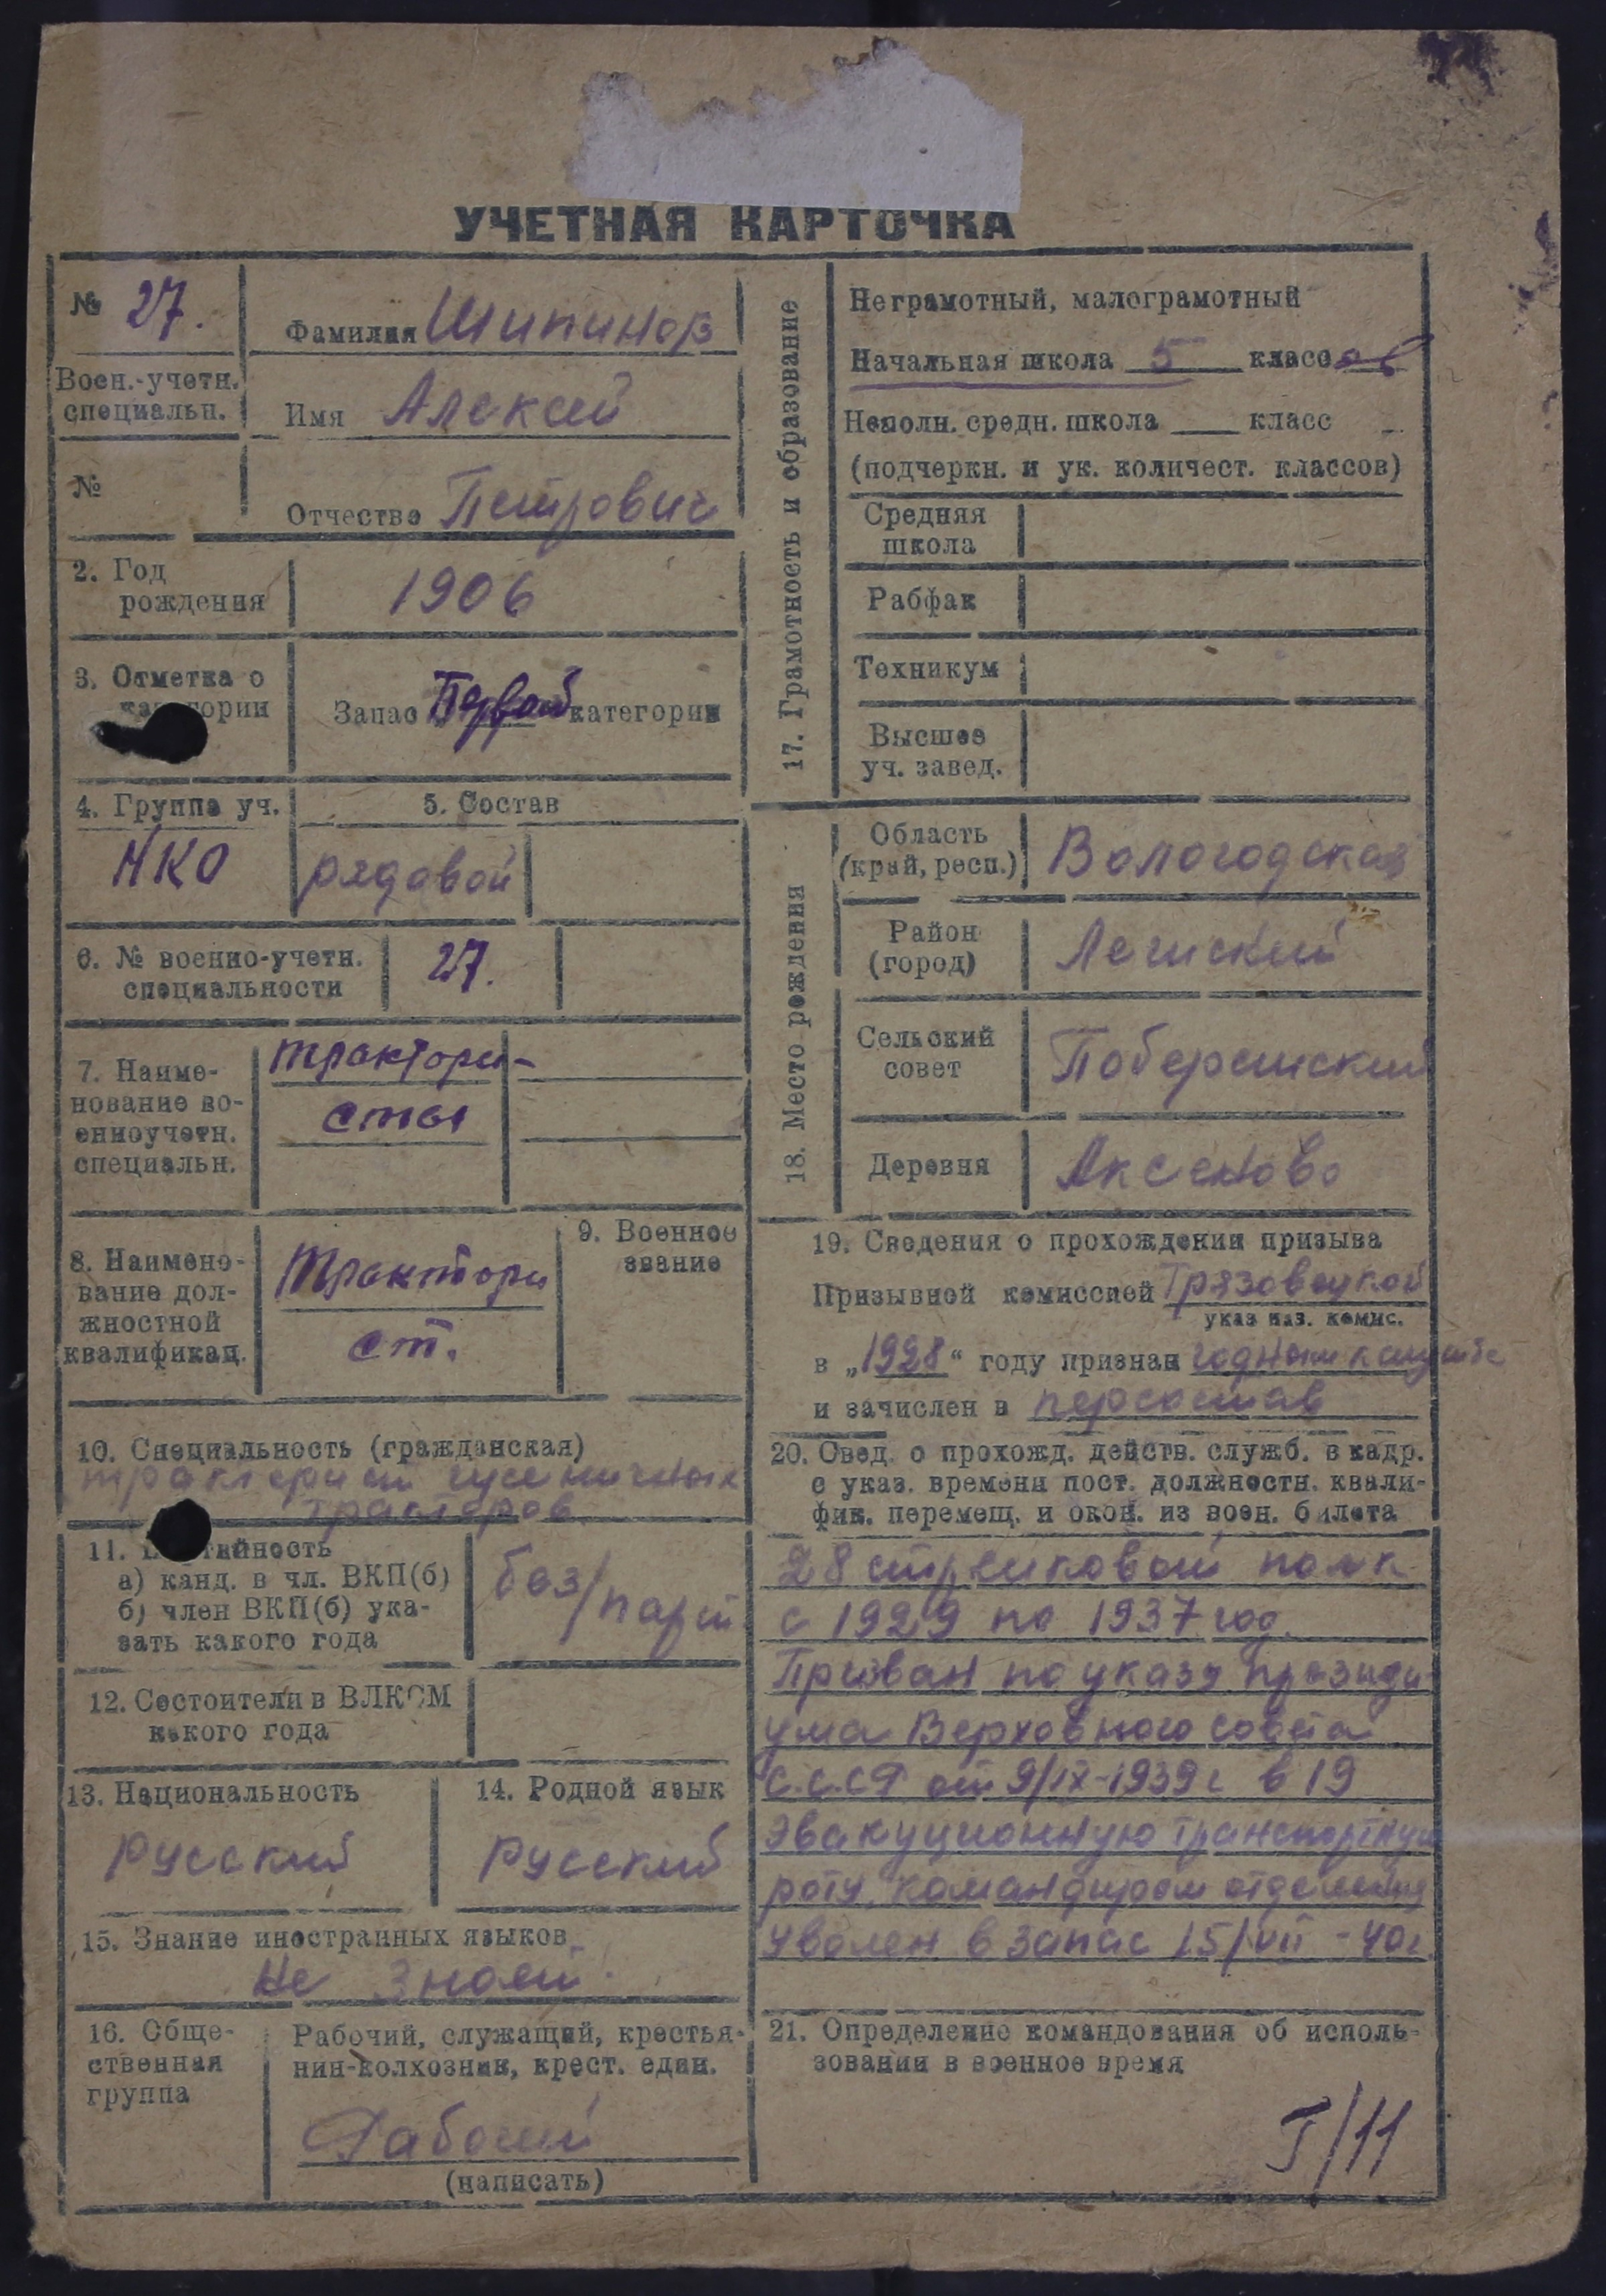 УЧЕТНАЯ КАРТОЧКА
№ 27.
Воен.-учетн.
специальн.
№
Фамилия Шипинов
Имя Алексей
Отчество Петрович
2. Год
рождения
1906
3. Отметка о
категории
Запас Первой категории
4. Группа уч.
НКО
5. Состав
рядовой
6. № военно-учетн.
специальности
27.
7. Наиме-
нование во-
енноучетн.
специальн.
трактори-
сты
8. Наимено-
вание дол-
жностной
квалификац.
Трактори
ст.
9. Военное
звание
10. Специальность (гражданская)
тракторист гусеничных
тракторов
11. Партийность
а) канд. в чл. ВКП(б)
б) член ВКП(б) ука-
зать какого года
без/парт
12. Состоител и в ВЛКСМ
какого года
13. Национальность
Русский
14. Родной язык
Русский
15. Знание иностранных языков
Не знает.
16. Обще-
ственная
группа
Рабочий, служащий, крестья-
нин-колхозник, крест. един.
Рабочий
(написать)
17. Грамотность и образование
Неграмотный, малограмотный
Начальная школа 5 классов
Неполн. средн. школа класс
(подчеркн. и ук. количест. классов)
Средняя
школа
Рабфак
Техникум
Высшее
уч. завед.
18. Место рождения
Область
(край, респ.)
Вологодская
Район
(город)
Лежский
Сельский
совет
Деревня
Аксеново
19. Сведения о прохождении призыва
Призывной комиссией Грязовецкой
указ наз. комис.
в „1928“ году признан годным к службе
и зачислен в персостав
20. Свед. о прохожд. действ. служб. в кадр.
с указ. времени пост. должностн. квали-
фик. перемещ. и окон. из воен. билета
28 стрелковой полк
с 1929 по 1937 год.
Призван по указу президи-
ума Верховного совета
С.С.СР от 9/IX-1939 г в 19
эвакуционную транспортную
роту, командиром отделения
Уволен в запас 15/VII-40г.
21. Определение командования об исполь-
зовании в военное время
I/11